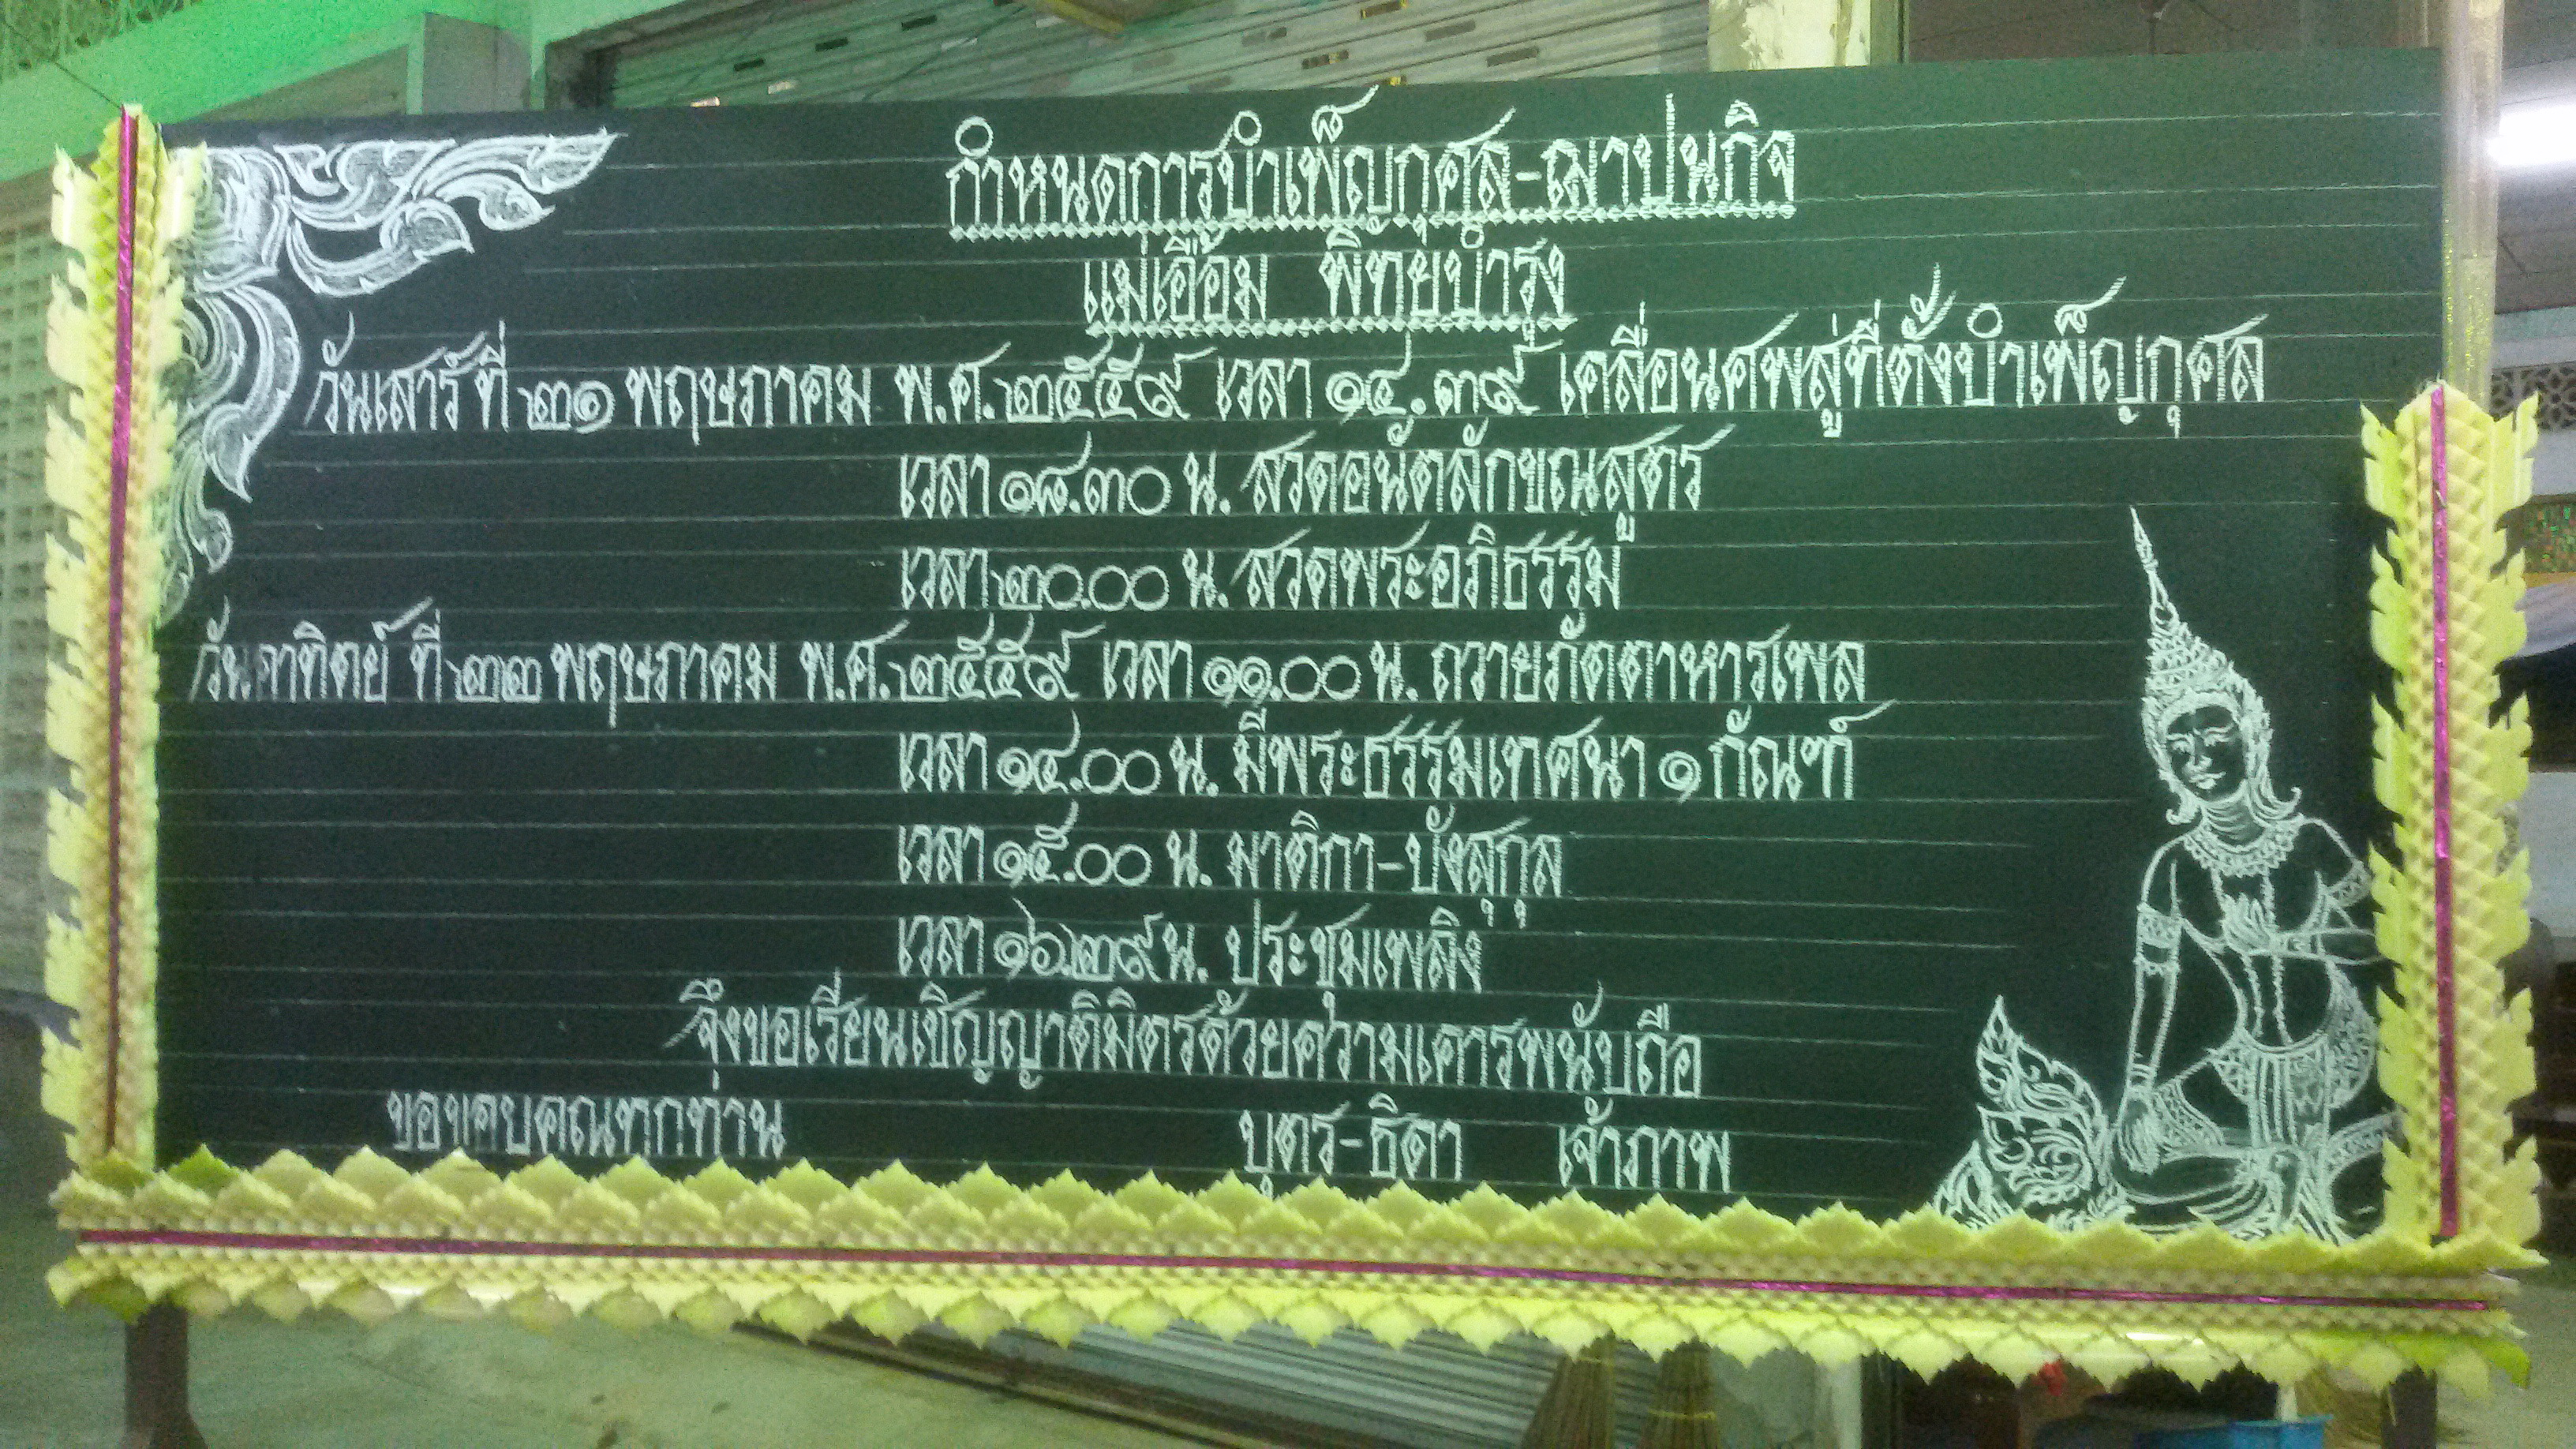 กำหนดการบำเพ็ญกุศล-ฌาปนกิจ
แม่เอื้อม พิทัยบำรุง
วันเสาร์ ที่ ๒๑ พฤษภาคม พ.ศ. ๒๕๕๙ เวลา ๑๔.๓๙ เคลื่อนศพสู่ที่ตั้งบำเพ็ญกุศล
เวลา ๑๘.๓๐ น. สวดอนัตลักขณสูตร
เวลา ๒๐.๐๐ น. สวดพระอภิธรรม
วันอาทิตย์ ที่ ๒๒ พฤษภาคม พ.ศ. ๒๕๕๙ เวลา ๑๑.๐๐ น. ถวายภัตตาหารเพล
เวลา ๑๔.๐๐ น. มีพระธรรมเทศนา ๑ กัณฑ์
เวลา ๑๕.๐๐ น. มาติกา-บังสุกุล
เวลา ๑๖.๒๙ น. ประชุมเพลิง
จึงขอเรียนเชิญญาติมิตรด้วยความเคารพนับถือ
ขอขอบคุณทุกท่าน บุตร-ธิดา เจ้าภาพ